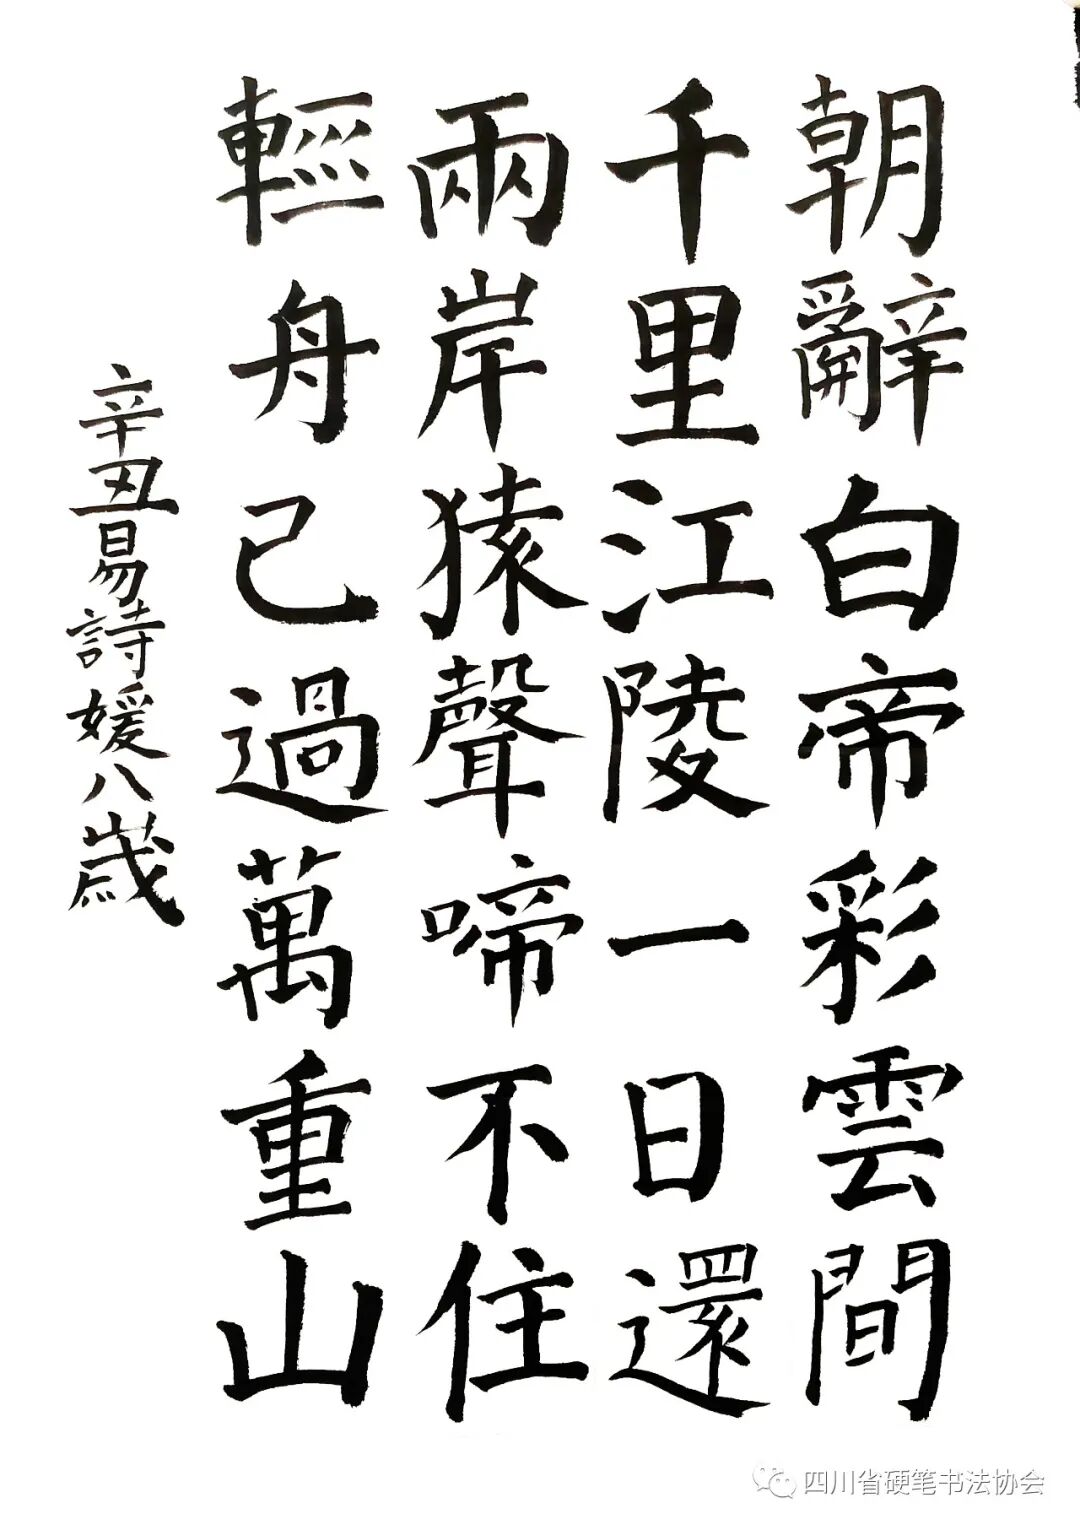 朝辭白帝彩雲間
千里江陵一日還
兩岸猿聲啼不住
輕舟已過萬重山
辛丑易詩媛八歲
四川省硬笔书法协会